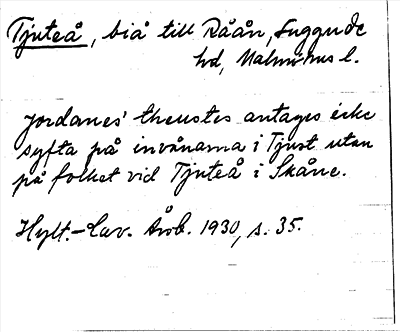 Tjuteå, biå till Råån, Luggude
hd, Malmöhus l.
Jordanes' theustes antages icke
syfta på invånarna i Tjust utan
på folket vid Tjuteå i Skåne.
Hylt.-Cav. Årsb. 1930, s. 35.